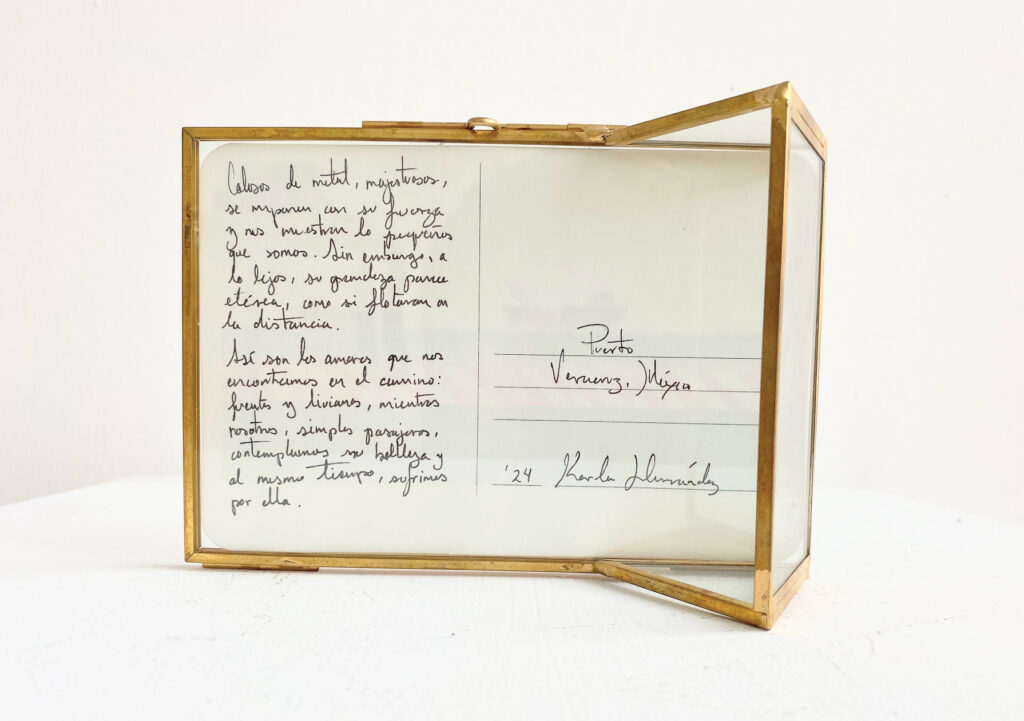 Colosos de metal, majestuosos,
se imponen con su fuerza
y nos muestran lo pequeños
que somos. Sin embargo, a
lo lejos, su grandeza parece
etérea, como si flotaran en
la distancia.
Así son los amores que nos
encontramos en el camino:
fuertes y livianos, mientras
nosotros, simples pasajeros,
contemplamos su belleza y
al mismo tiempo, sufrimos
por ella.
Puerto
Veracruz, México
'24 Karla Hernández